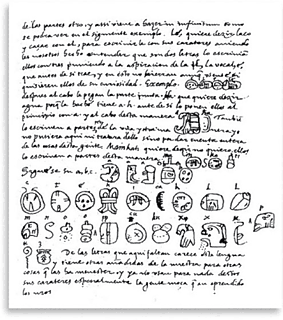 de las partes otro, y assi viene a hazer in infinitum como
se podra ver en el siguiente exemplo. Lé, quiere dezir laço
y caçar con el, para escrivirle con sus carateres aviendo
les nosotros hecho entender que son dos letras lo escrivian
ellos con tres puniendo a la aspiracion de la l, la vocal é,
que antes de si trae, y en esto no hierran aunque
quisieren ellos de su curiosidad. Exemplo.
despues al cabo le pegan la parte junta. Ha que quiere dezir
agua porq la hache tiene a. h. ante de si lo ponen ellos al
principio con a. y al cabo desta manera Tambien
lo escriven a partes de la una y otra manera yo
no pusiera aqui ni tratara dello sino por dar cuenta entera
de las cosas desta gente. Mainkati quiere dezir no quiero ellos
lo escriven a partes desta manera.
Siguese su a, b, c.
De las letras que aqui faltan carece esta lengua
y tiene otras añadidas de la nuestra para otras
cosas q las ha menester, y ya no usan para nada destos
sus carateres especialmente la gente moça q an aprendido
los nros